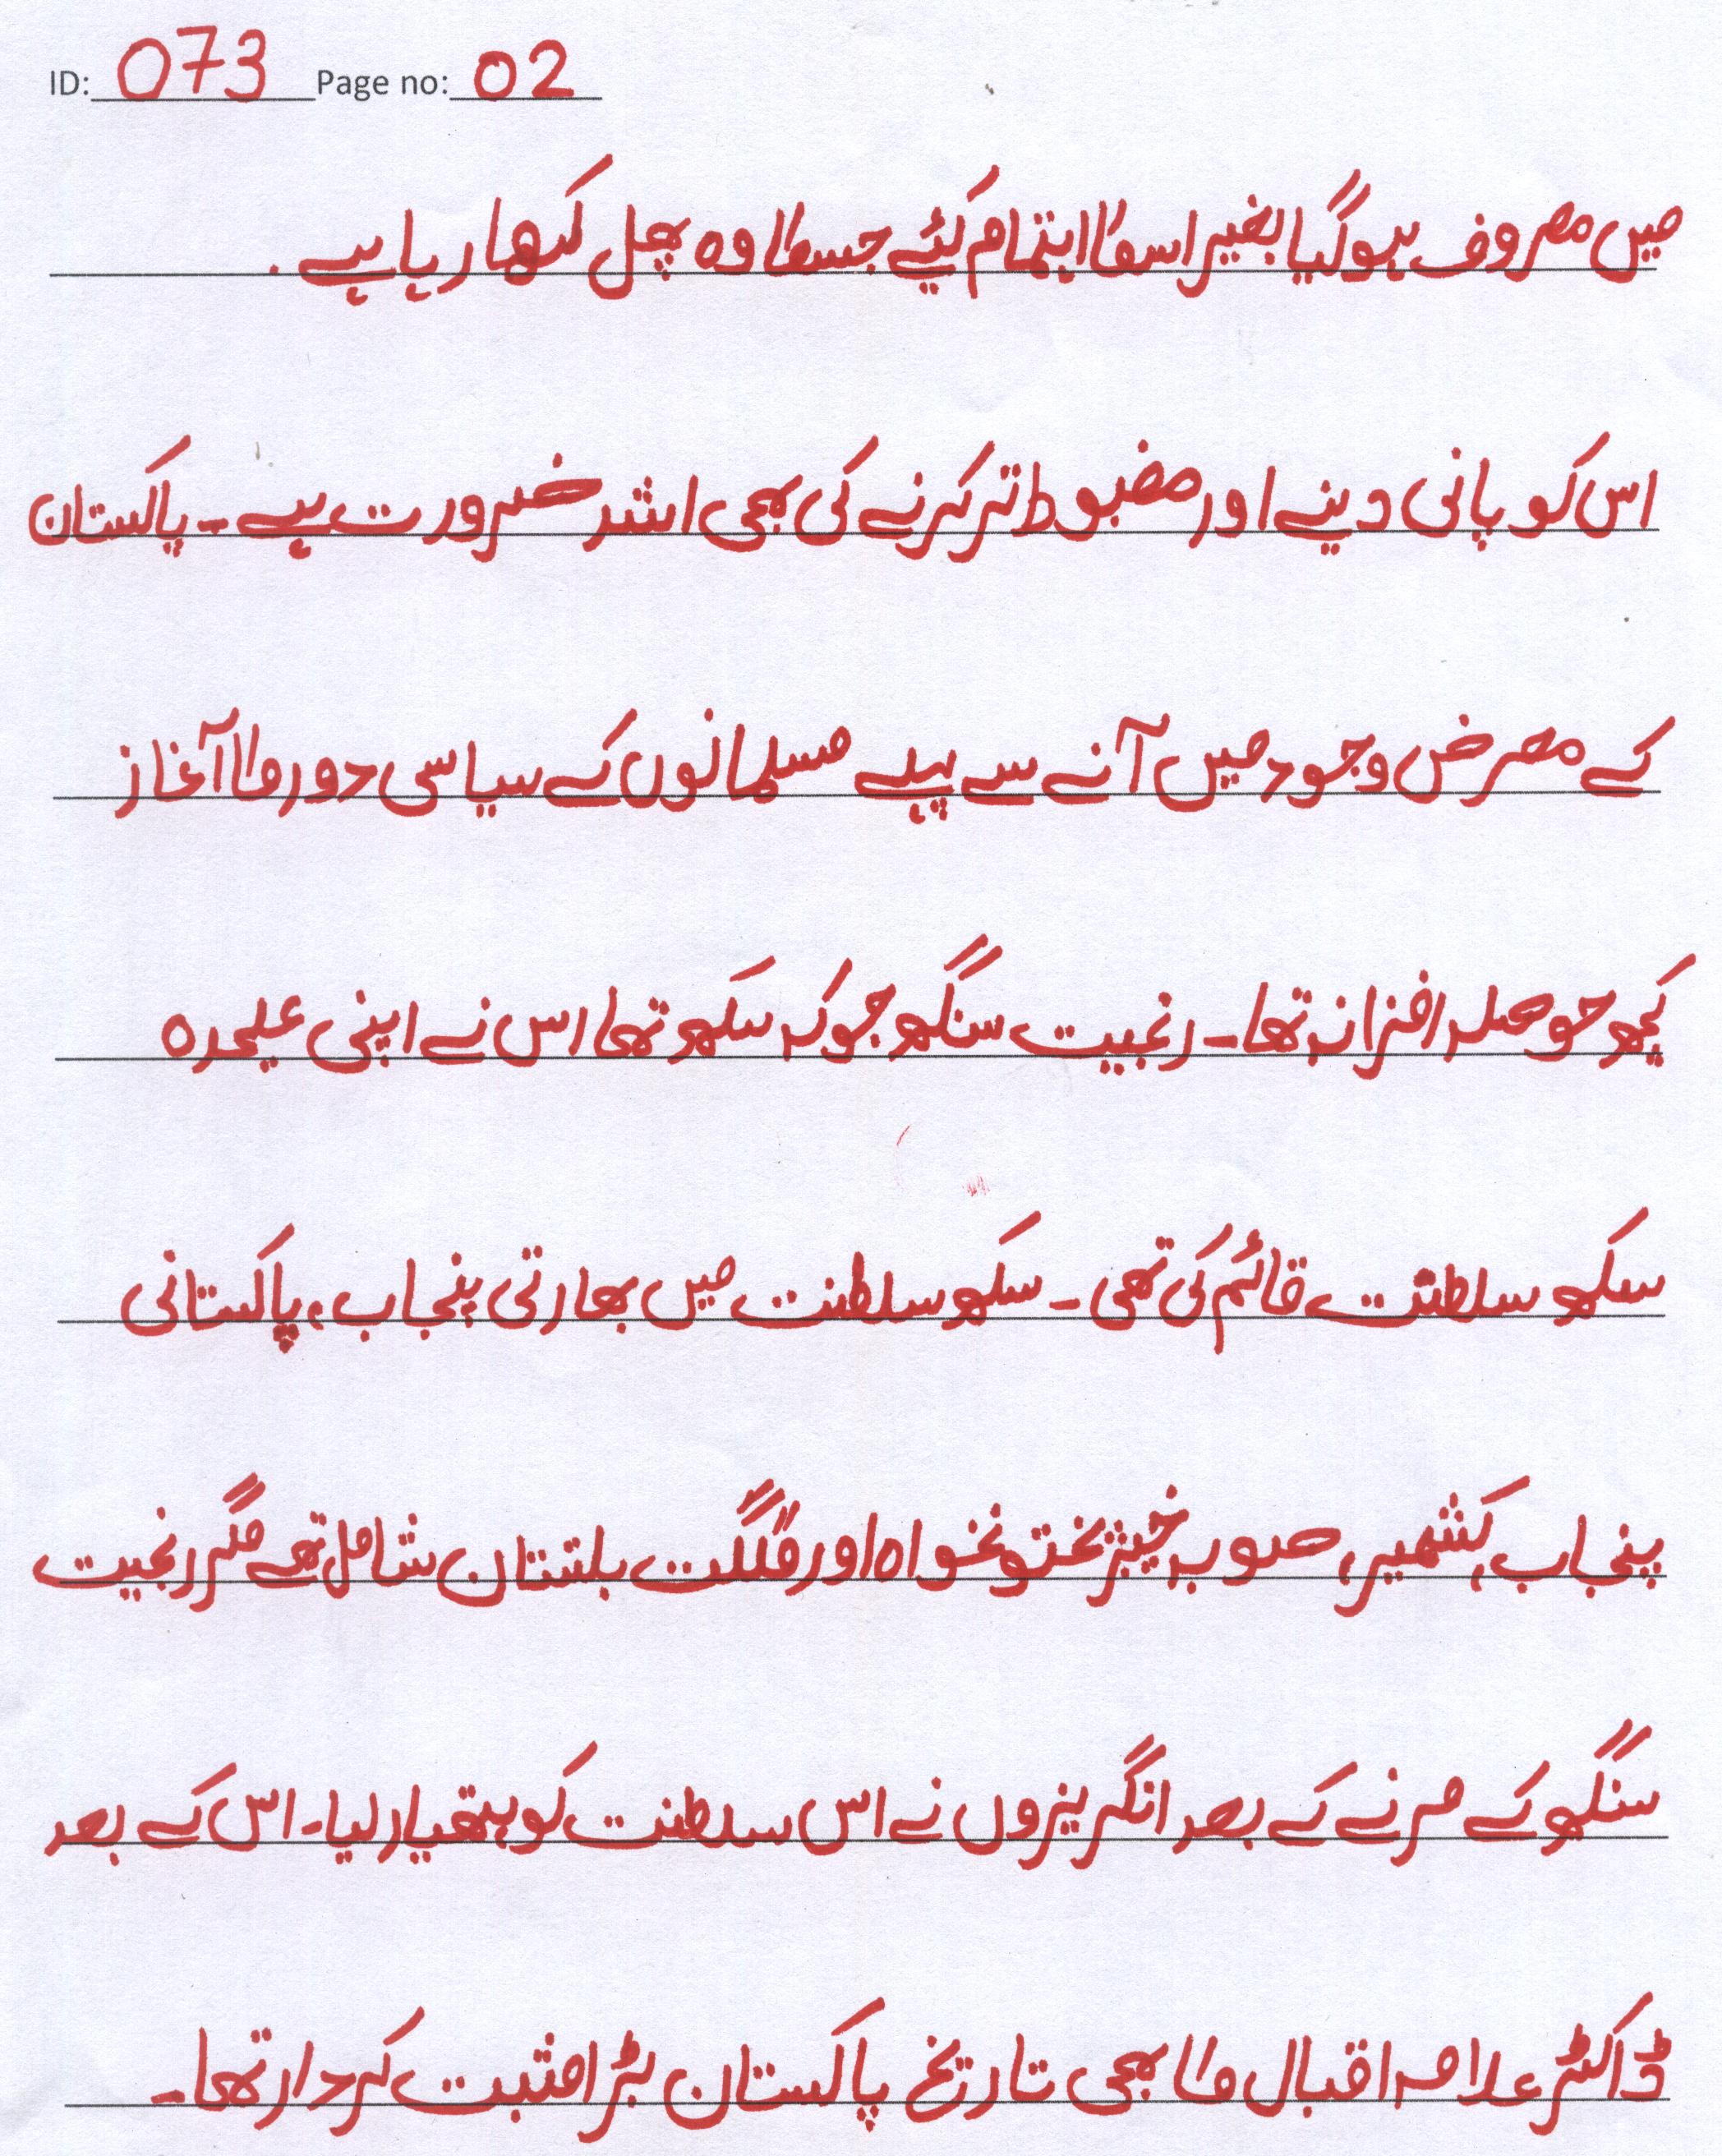 ID: 073 Page no: 02
میں مصروف ہوگیا بغیر اسکا اہتمام کئے جسکا وہ پھل کھا رہا ہے.
اس کو پانی دینے اور مضبوط تر کرنے کی بھی اشد ضرورت ہے - پاکستان
کے معرض وجود میں آنے سے پہلے مسلمانوں کے سیاسی دور کا آغاز
کچھ حوصلہ افزا نہ تھا - رنجیت سنگھ جو کہ سکھ تھا اس نے اپنی علیحدہ
سکھ سلطنت قائم کی تھی - سکھ سلطنت میں بھارتی پنجاب، پاکستانی
پنجاب، کشمیر، صوبہ خیبر پختونخواہ اور گلگت بلتستان شامل تھے مگر رنجیت
سنگھ کے مرنے کے بعد انگریزوں نے اس سلطنت کو ہتھیا لیا - اس کے بعد
ڈاکٹر علامہ اقبال کا بھی تاریخ پاکستان بڑا مثبت کردار تھا -